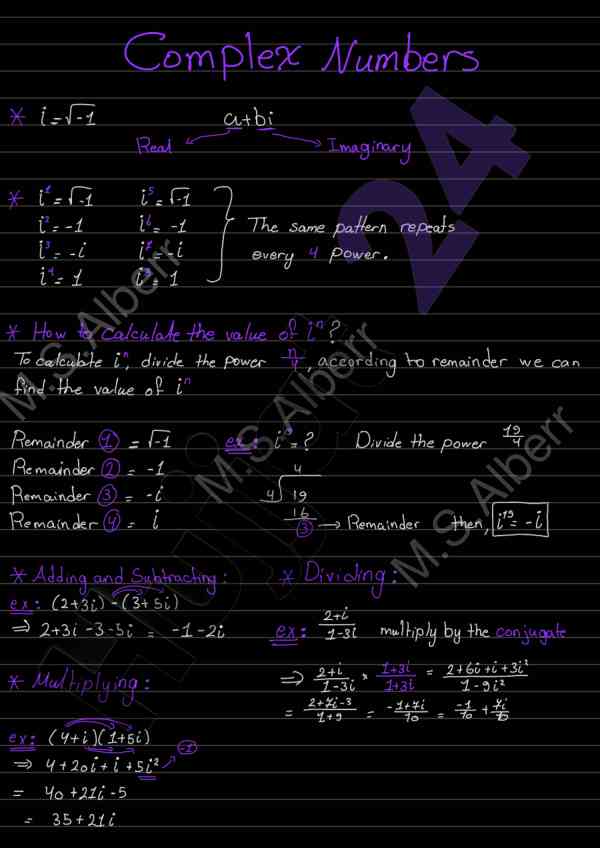 Complex Numbers
* i = √-1    a+bi
Real    Imaginary
* i¹ = √-1    i⁵ = √-1
i² = -1    i⁶ = -1
i³ = -i    i⁷ = -i
i⁴ = 1    i⁸ = 1
The same pattern repeats
every 4 power.
* How to calculate the value of iⁿ?
To calculate iⁿ, divide the power n/4, according to remainder we can
find the value of iⁿ
Remainder ① = √-1
Remainder ② = -1
Remainder ③ = -i
Remainder ④ = i
ex: i¹⁹ = ?    Divide the power 19/4
4
4 √ 19
16
③ → Remainder    then, i¹⁹ = -i
* Adding and Subtracting:
ex: (2+3i) - (3+5i)
⇒ 2+3i -3-5i = -1-2i
* Multiplying:
ex: (4+i)(1+5i)
⇒ 4+20i+i+5i² → -1
= 40+21i-5
= 35+21i
* Dividing:
ex: 2+i/1-3i multiply by the conjugate
⇒ 2+i/1-3i * 1+3i/1+3i = 2+6i+i+3i²/1-9i²
= 2+7i-3/1+9 = -1+7i/10 = -1/10 + 7i/10
24
M.S.Alberr
M.S.Alberr
M.S.Alberr